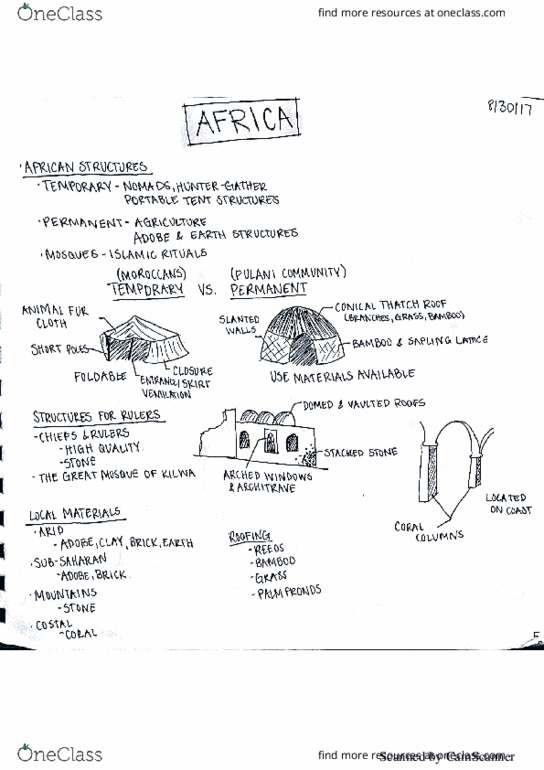 OneClass
find more resources at oneclass.com
AFRICA
8/30/17
·AFRICAN STRUCTURES
·TEMPORARY - NOMADS, HUNTER-GATHER
PORTABLE TENT STRUCTURES
·PERMANENT - AGRICULTURE
ADOBE & EARTH STRUCTURES
·MOSQUES - ISLAMIC RITUALS
(MOROCCANS) (PULANI COMMUNITY)
TEMPORARY VS. PERMANENT
ANIMAL FUR
CLOTH
SHORT POLES
FOLDABLE
CLOSURE
ENTRANCE/SKIRT
VENILATION
SLANTED
WALLS
CONICAL THATCH ROOF
(BRANCHES, GRASS, BAMBOO)
BAMBOO & SAPLING LATTICE
USE MATERIALS AVAILABLE
STRUCTURES FOR RULERS
-CHIEFS & RULERS
-HIGH QUALITY
-STONE
-THE GREAT MOSQUE OF KILWA
DOMED & VAULTED ROOFS
STACKED STONE
ARCHED WINDOWS
& ARCHITRAVE
LOCATED
ON COAST
CORAL
COLUMNS
LOCAL MATERIALS
·ARID
-ADOBE, CLAY, BRICK, EARTH
·SUB-SAHARAN
-ADOBE, BRICK
·MOUNTAINS
-STONE
·COSTAL
-CORAL
ROOFING
-REEDS
-BAMBOO
-GRASS
-PALM FRONDS
OneClass
find more resources at oneclass.com
Scanned by CamScanner